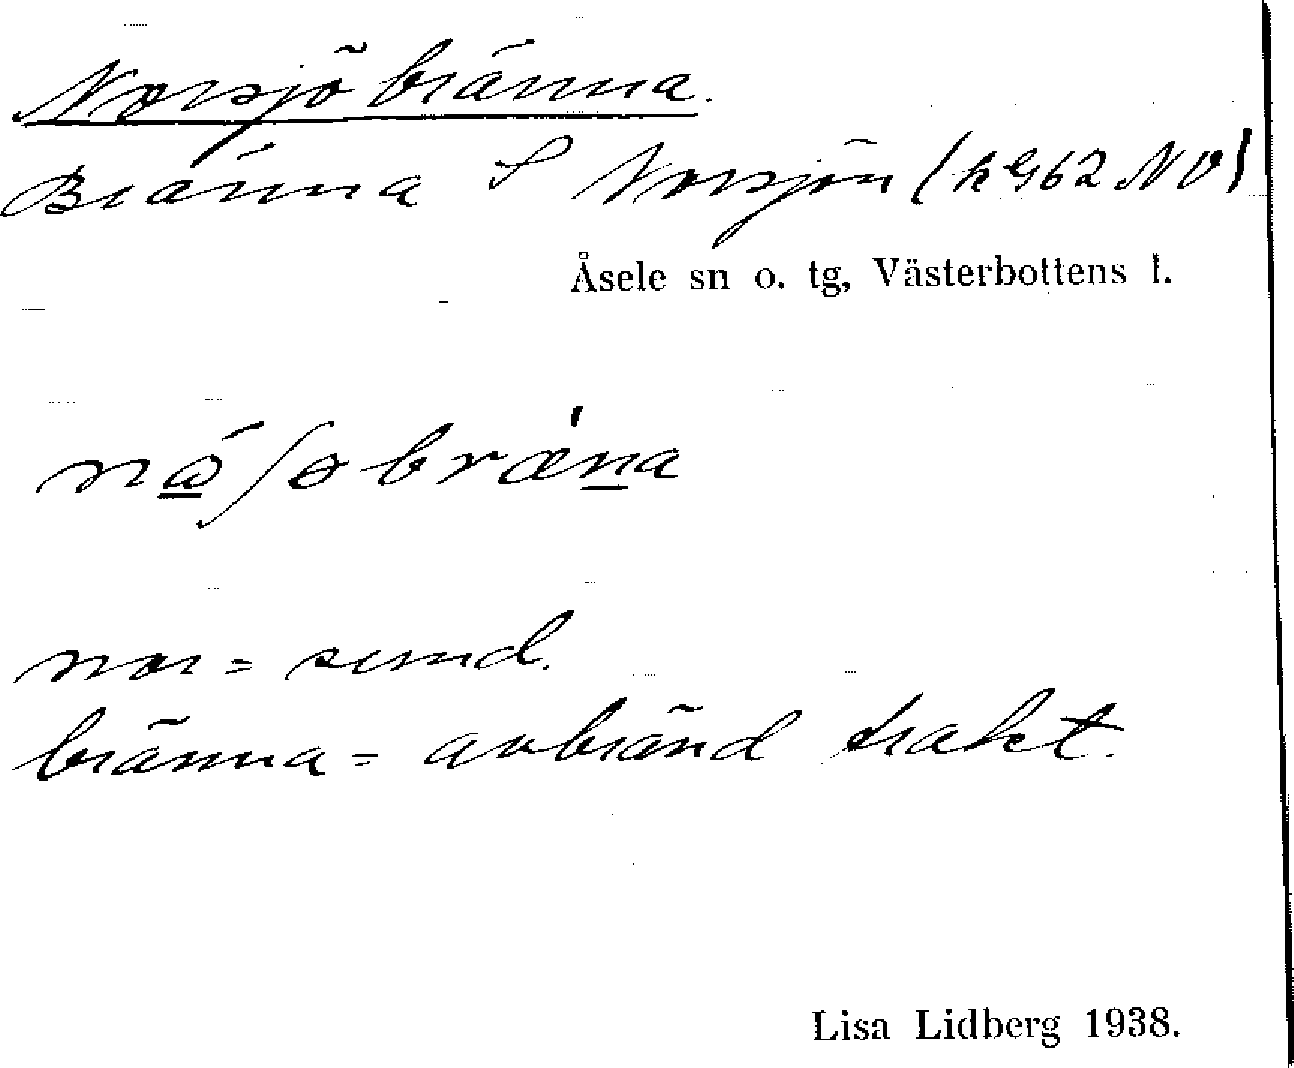 Norsjöbränna.
Bränna S Norsjön (k 962 NV)
Åsele sn o. tg, Västerbottens l.
nor = sund.
bränna = avbränd trakt.
Lisa Lidberg 1938.